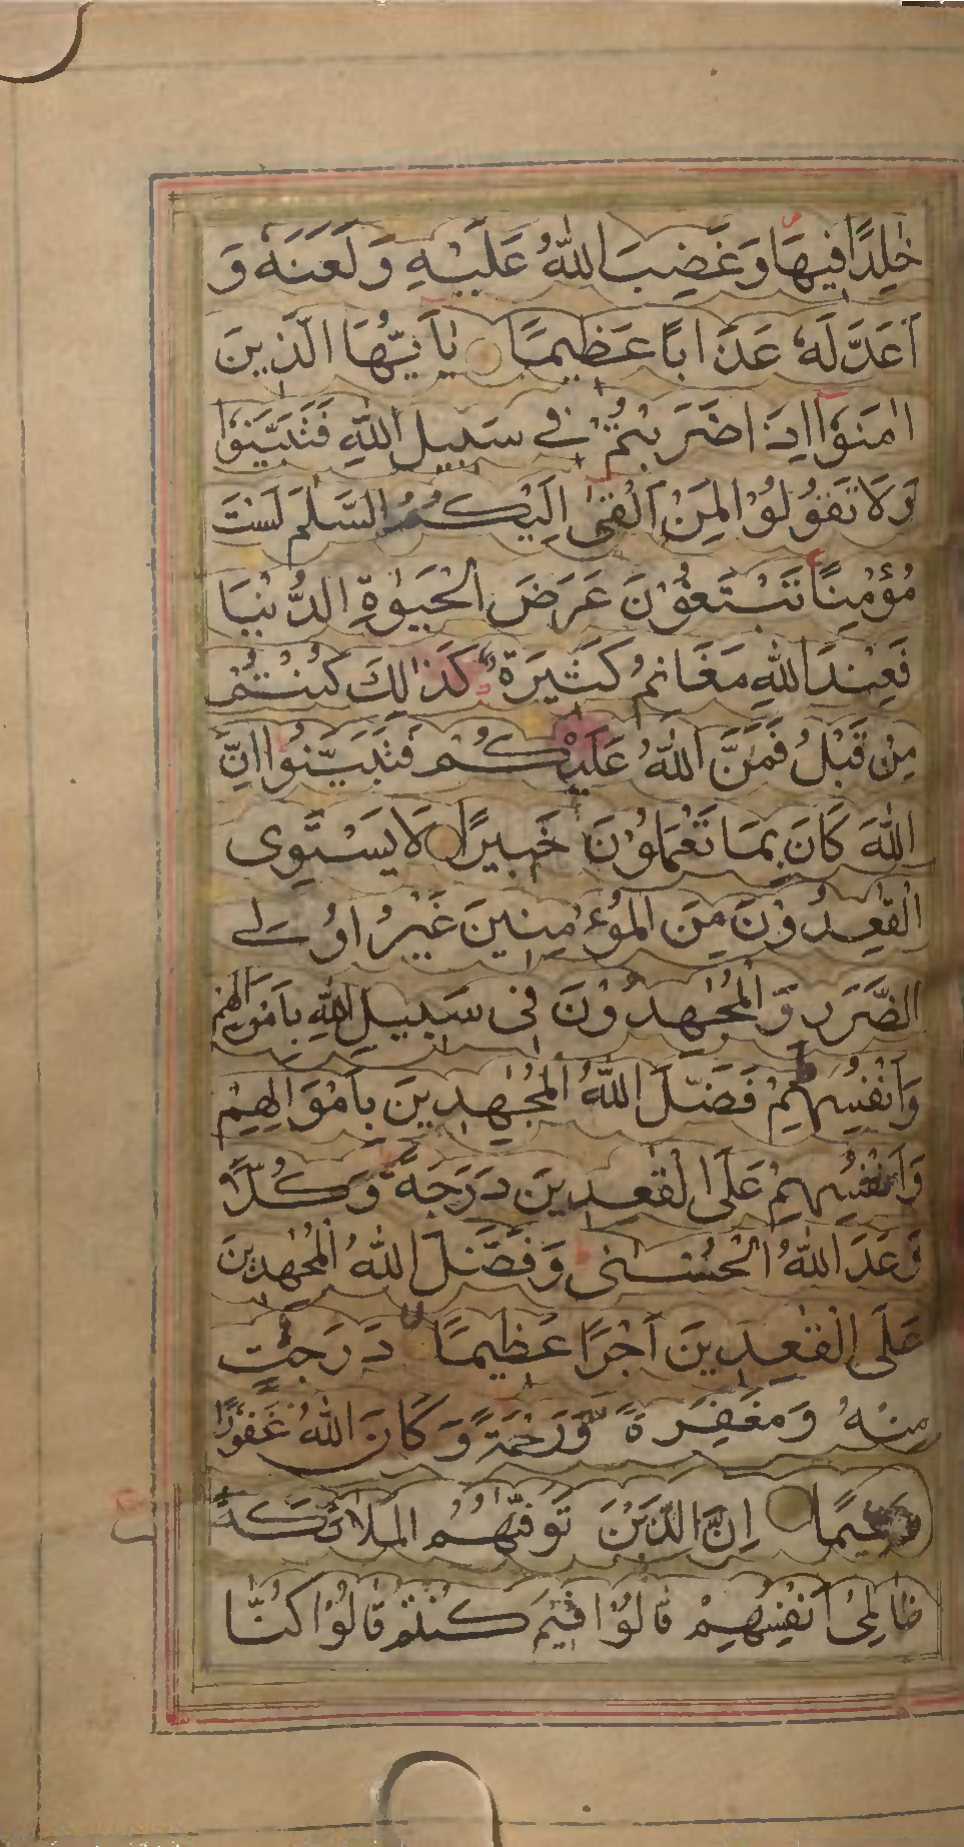 خٰلِدًا فِيهَا وَغَضِبَ اللّٰهُ عَلَيْهِ وَلَعَنَهٗ وَ
اَعَدَّ لَهٗ عَذَابًا عَظِيمًا يٰاَيُّهَا الَّذِينَ
اٰمَنُوٓا اِذَا ضَرَبْتُمْ فِي سَبِيلِ اللّٰهِ فَتَبَيَّنُوْا
وَلَا تَقُوْلُوْا لِمَنْ اَلْقٰى اِلَيْكُمُ السَّلٰمَ لَسْتَ
مُؤْمِنًا تَبْتَغُوْنَ عَرَضَ الْحَيٰوةِ الدُّنْيَا
فَعِنْدَ اللّٰهِ مَغَانِمُ كَثِيرَةٌ كَذٰلِكَ كُنْتُمْ
مِنْ قَبْلُ فَمَنَّ اللّٰهُ عَلَيْكُمْ فَتَبَيَّنُوْا اِنَّ
اللّٰهَ كَانَ بِمَا تَعْمَلُوْنَ خَبِيرًا لَا يَسْتَوِى
الْقٰعِدُوْنَ مِنَ الْمُؤْمِنِينَ غَيْرُ اُولِى
الضَّرَرِ وَالْمُجٰهِدُوْنَ فِى سَبِيلِ اللّٰهِ بِاَمْوَالِهِمْ
وَاَنْفُسِهِمْ فَضَّلَ اللّٰهُ الْمُجٰهِدِينَ بِاَمْوَالِهِمْ
وَاَنْفُسِهِمْ عَلَى الْقٰعِدِينَ دَرَجَةً وَكُلًّا
وَعَدَ اللّٰهُ الْحُسْنٰى وَفَضَّلَ اللّٰهُ الْمُجٰهِدِينَ
عَلَى الْقٰعِدِينَ اَجْرًا عَظِيمًا دَرَجٰتٍ
مِنْهُ وَمَغْفِرَةً وَرَحْمَةً وَكَانَ اللّٰهُ غَفُوْرًا
رَحِيمًا اِنَّ الَّذِيْنَ تَوَفّٰىهُمُ الْمَلٰٓئِكَةُ
ظَالِمِىٓ اَنْفُسِهِمْ قَالُوْا فِيْمَ كُنْتُمْ قَالُوْا كُنَّا